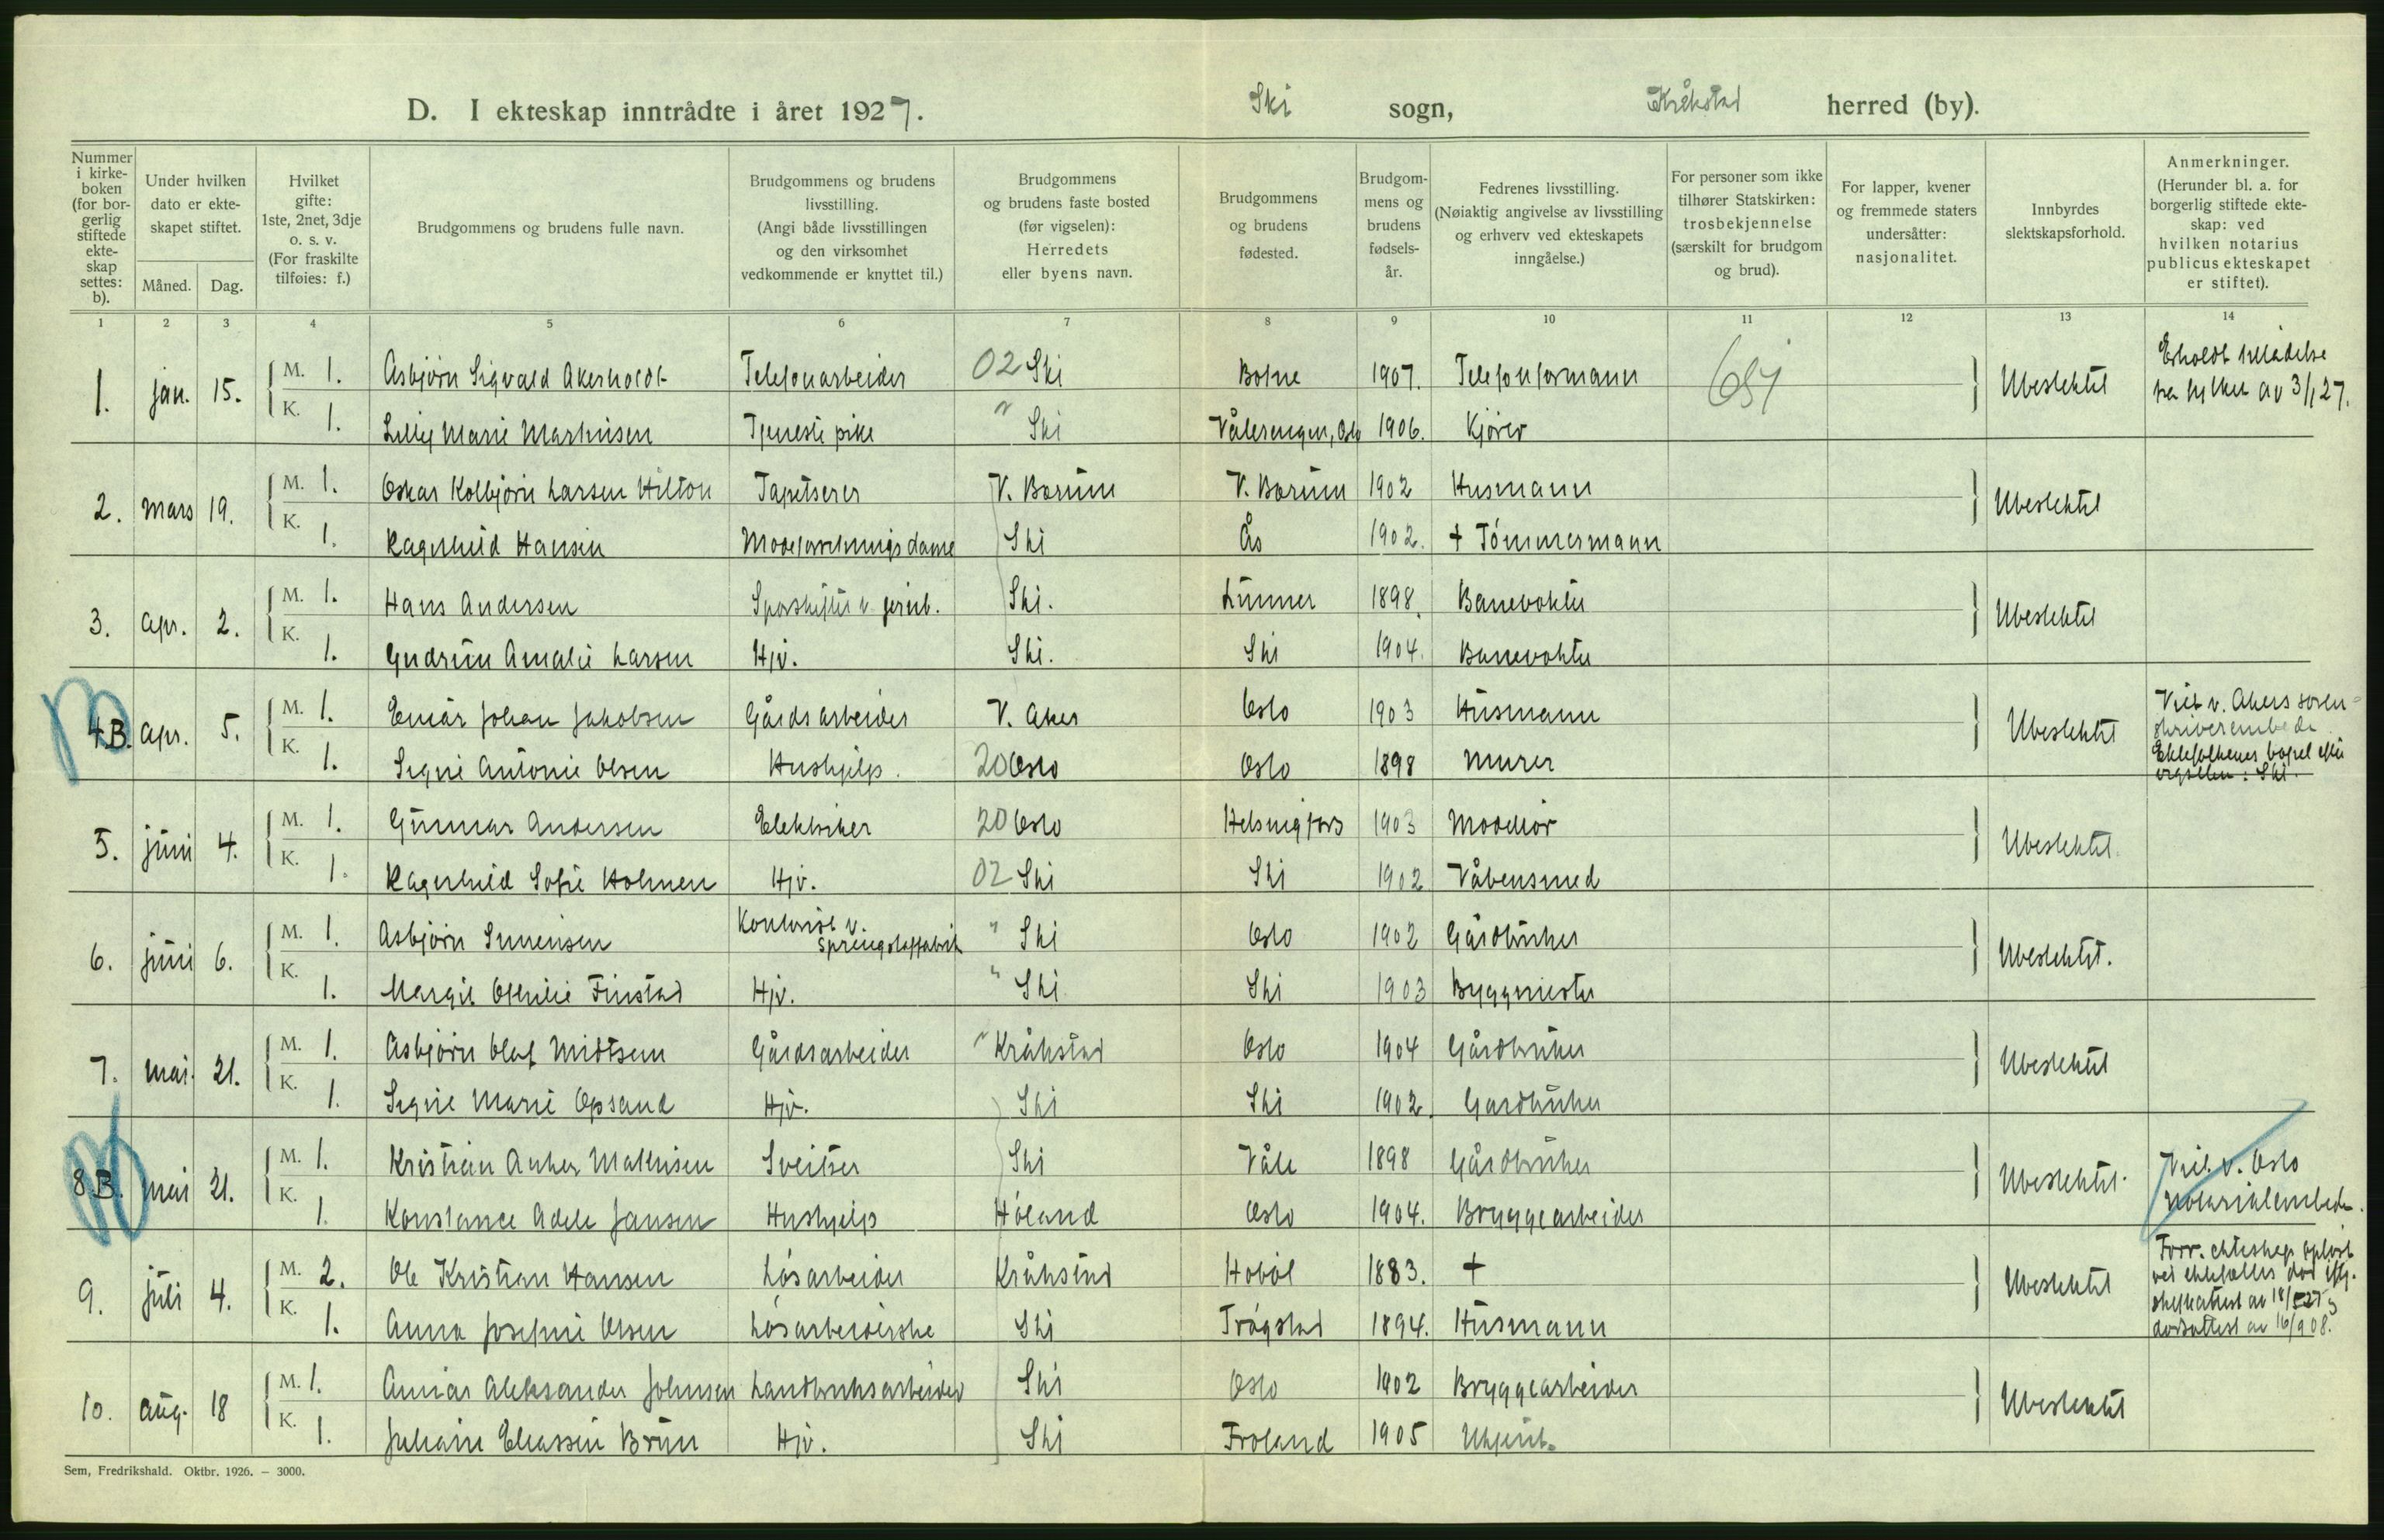 D. I ekteskap inntrådte i året 1927. Ski sogn, Kråkstad herred (by).
Nummer i kirkeboken (for borgerlig stiftede ekteskap settes: b).
Under hvilken dato er ekteskapet stiftet.
Måned. Dag.
Hvilket gifte: 1ste, 2net, 3dje o. s. v. (For fraskilte tilføies: f.)
Brudgommens og brudens fulle navn.
Brudgommens og brudens livsstilling. (Angi både livsstillingen og den virksomhet vedkommende er knyttet til.)
Brudgommens og brudens faste bosted (før vigselen): Herredets eller byens navn.
Brudgommens og brudens fødested.
Brudgommens og brudens fødselsår.
Fedrenes livsstilling. (Nøiaktig angivelse av livsstilling og erhverv ved ekteskapets inngåelse.)
For personer som ikke tilhører Statskirken: trosbekjennelse (særskilt for brudgom og brud).
For lapper, kvener og fremmede staters undersåtter: nasjonalitet.
Innbyrdes slektskapsforhold.
Anmerkninger. (Herunder bl. a. for borgerlig stiftede ekteskap: ved hvilken notarius publicus ekteskapet er stiftet).
1 2 3 4 5 6 7 8 9 10 11 12 13 14
1. jan. 15. M. 1. Asbjörn Sigvald Akerholdt Telefonarbeider 02 Ski Botne 1907. Telefonformann Ubeslektet Erholdt tilladelse
fra fylket av 3/1 27.
K. 1. Lilly Marie Martinsen Tjeneste pike " Ski Vålerengen, Oslo 1906. Kjörer
2. mars 19. M. 1. Oskar Kolbjörn Larsen Hilton Tapetserer V. Bærum V. Bærum 1902 Husmann Ubeslektet
K. 1. Ragnhild Hansen Modeforretningsdame Ski Ås 1902. + Tömmermann
3. apr. 2. M. 1. Hans Andersen Sporskifter v. jernb. Ski. Lunner 1898. Banevokter Ubeslektet
K. 1. Gudrun Amalie Larsen Hjv. Ski. Ski 1904. Banevokter
4.B. apr. 5. M. 1. Einar Johan Jakobsen Gårdsarbeider V. Aker Oslo 1903 Husmann Ubeslektet Viet v. Akers soren-
skriverembede
Ektefolkenes bopel efter
vigselen: Ski.
K. 1. Signe Antonie Olsen Hushjelp. 20 Oslo Oslo 1898 Murer
5. juni 4. M. 1. Gunnar Andersen Elektriker 20 Oslo Helsingfors 1903 Modellör Ubeslektet.
K. 1. Ragnhild Sofie Holmen Hjv. 02 Ski Ski 1902 Våbensmed
6. juni 6. M. 1. Asbjörn Simensen Kontorist v.
Sprengstoffabrik " Ski Oslo 1902 Gårdbruker Ubeslektet.
K. 1. Margit Othilie Finstad Hjv. " Ski Ski 1903 Byggmester
7. mai. 21. M. 1. Asbjörn Olaf Midtsem Gårdsarbeider " Kråkstad Oslo 1904 Gårdbruker Ubeslektet
K. 1. Signe Marie Opsand Hjv. Ski Ski 1902. Gardbruker
8.B. mai 21. M. 1. Kristian Anker Mathisen Sveitser Ski Våle 1898 Gårdbruker Ubeslektet. Viet v. Oslo
Notarialembede.
K. 1. Konstance Adele Jansen Hushjelp Höland Oslo 1904. Bryggearbeider
9. juli 4. M. 2. Ole Kristian Hansen Lösarbeider Kråkstad Hobøl 1883. + Ubeslektet Forr. ekteskap oplöst
ved ektefælles död iflg.
skifteattest av 18/ 27 og
dödsattest av 16/9 08.
K. 1. Anna Josefine Olsen Lösarbeiderske Ski Trögstad 1894. Husmann
10. aug. 18 M. 1. Annar Aleksander Johnsen Landbruksarbeider Ski Oslo 1902 Bryggearbeider Ubeslektet
K. 1. Juliane Eliassen Brun Hjv. Ski Froland 1905 Ukjent.
Sem, Fredrikshald. Oktbr. 1926. – 3000.